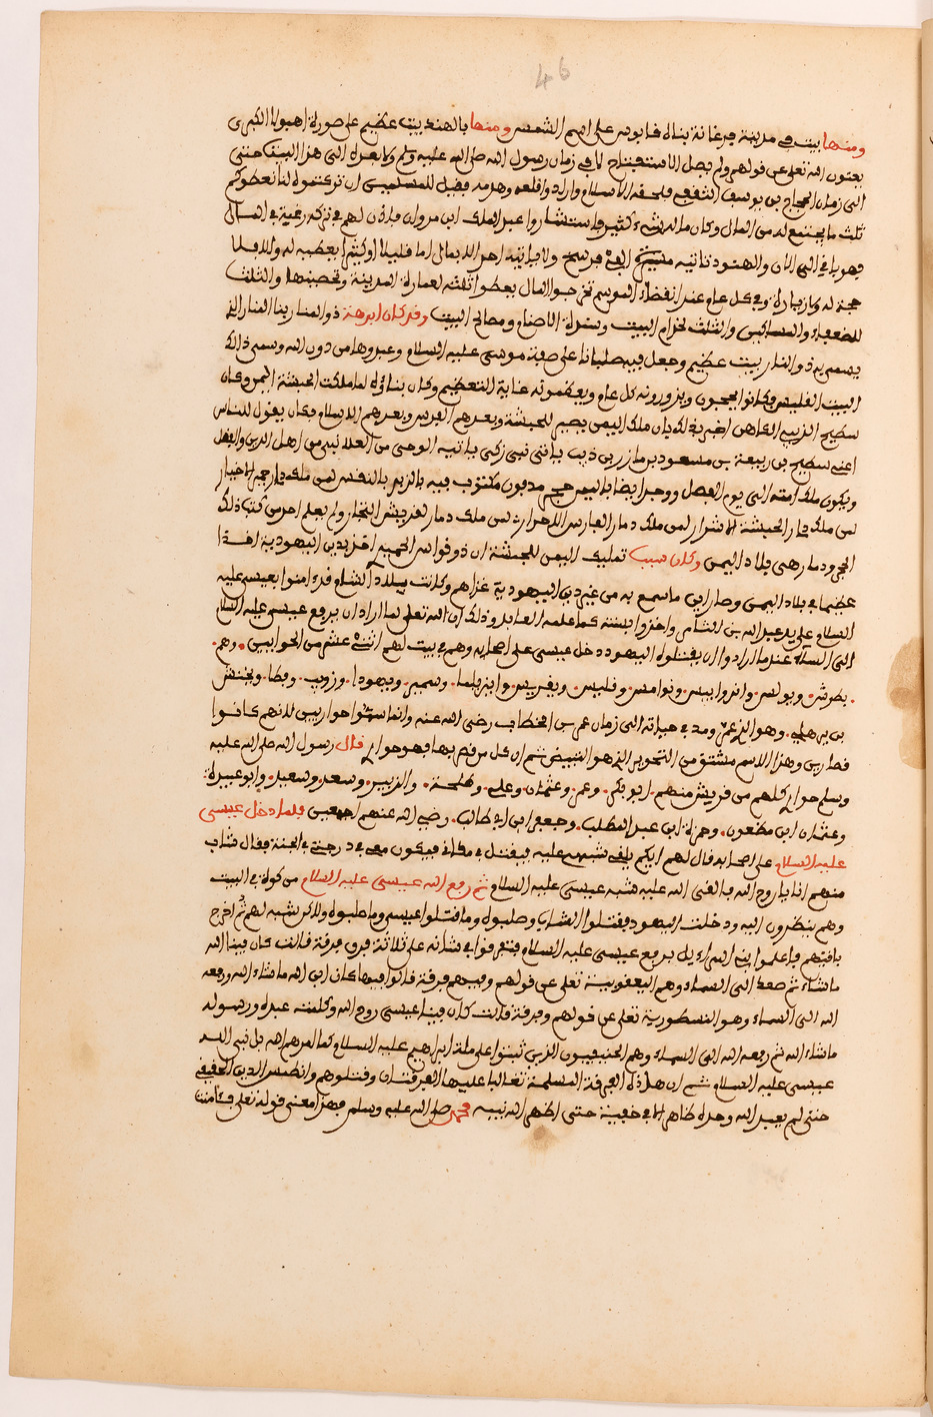 46
ومنها بيت في مدينة فرغانة بناه قابوس على اسم الشمس ومنها بالهند بيت عظيم على صورة اهبولا الكبرى
يعنون الله تعلى عن قولهم ولم يصل الاستفتاح لا في زمان رسول الله صلى الله عليه وسلم ولا بعده الى هذا البيت حتى
الى زمان الحجاج بن يوسف الثقفي فلحقه الاسلام وارادوا قلعه وهدمه فقيل للمسلمين ان تركتموه لنا نعطوكم
ثلث ما يجتمع له من المال وكان ماله شيء كثير فاستشاروا عبد الملك ابن مروان فاذن لهم في تركه رغبة في المال
فهو باق الى الان والهنود تاتيه مسيرة الف فرسخ ولا ياتيه احد الا بمال اما قليلا او كثيرا يعطيه له والا فلا
حجة له ولا زيارة وفي كل عام عند انقضاء الموسم تخرجوا المال يعطوا ثلثه لعمارة المدينة وتحصينها والثلث
للضعفاء والمساكين والثلث لخدام البيت وسترة الاصنام ومصالح البيت وقد كان ابرهة ذو المنار بنا المنار الذي
يسمى به ذو المنار بيت عظيم وجعل فيه صلبانا على صفة موسى عليه السلام وعبدوها من دون الله وسمى ذالك
البيت القليس فكانوا يحجون ويزورونه كل عام ويعظمونه غاية التعظيم وكان بناؤه لما ملكت الحبشة اليمن وكان
سطيح الذيبي الكاهن اخبر بذلك بان ملك اليمن يصير للحبشة وبعدهم الفرس وبعدهم الاسلام فكان يقول للناس
اعني سطيح بن ربيعة بن مسعود بن مازن بن ذيب ياتي نبي زكي ياتيه الوحي من العلا نبي من اهل الدين والفضل
ويكون ملك امته الى يوم الفصل ووجد ايضا باليمن حجر مدفون مكتوب فيه بالزبر بالنفس لمن ملك ذمار حمير الاخيار
لمن ملك ذمار الحبشة الاشرار لمن ملك ذمار لفارس الاحرار لمن ملك ذمار لقريش التجار ولم يعلم احد من كتب ذلك
الحجر وذمار هي بلاد اليمن وكان سبب تمليك اليمن للحبشة ان ذو نواس الحميري اخذ بدين اليهودية اخذا
عظيما في بلاد اليمن وصار اين ما سمع به من غير دين اليهودية غزاهم وكانت ببلاد الشام قد امنوا بعيسى عليه
السلام على يد عبد الله بن الثامر واخذوا بسنته كما علمه العابد وذلك ان الله تعلى لما اراد ان يرفع عيسى عليه السلام
الى السماء عندما ارادوا ان يقتلوه اليهود دخل عيسى على اصحابه وهم في بيت لهم اثنى عشر من الحواريين وهم
بطرش وبولس واندراييس وتوامس وفليس ويعقريس وابن تلما وسمير ويهودا وزويب وفطا ويحنس
بن يرهلي وهو الذي عمر ومد في حياته الى زمان عمر بن الخطاب رضي الله عنه وانما سموا حواريين لانهم كانوا
قصارين وهذا الاسم مشتق من التحوير الذي هو التبييض ثم ان كل من قصر بها فهو حواري قال رسول الله صلى الله عليه
وسلم حواري كلهم من قريش منهم ابو بكر وعمر وعثمان وعلي وطلحة والزبير وسعد وسعيد وابو عبيدة
وعثمان ابن مظعون وحمزة ابن عبد المطلب وجعفر ابن ابي طالب رضي الله عنهم اجمعين فلما دخل عيسى
عليه السلام على اصحابه قال لهم ايكم يلقى شبهي عليه فيقتل في مكاني فيكون معي في درجتي في الجنة فقال شاب
منهم انا يا روح الله فالقى الله عليه شبه عيسى عليه السلام ثم رفع الله عيسى عليه السلام من كوة في البيت
وهم ينظرون اليه ودخلت اليهود فقتلوا الشاب وصلبوه وما قتلوا عيسى وما صلبوه ولاكن شبه لهم ثم اخرج
باقيهم فاعلموا بني اسراءيل برفع عيسى عليه السلام فتفرقوا في شانه على ثلاثة فرق فرقة قالت كان فينا الله
ما شاء ثم صعد الى السماء وهم اليعقوبية تعلى عن قولهم ومنهم فرقة قالوا فيها كان ابن الله ما شاء الله ورفعه
الله الى السماء وهو النسطورية تعلى عن قولهم وفرقة قالت كان فينا عيسى روح الله وكلمته عبده ورسوله
ما شاء الله ثم رفعه الله الى السماء وهم الحنيفيون الذين ثبتوا على ملة ابراهيم عليه السلام كما امرهم الله بل نبي الله
عيسى عليه السلام ثم ان هاذه الفرقة المسلمة تغالبا عليها الفرقتان وقتلوهم وانطمس الدين الحقيقي
حتى لم يعبد الله وحده ظاهرا لا في خفية حتى اظهر الله نبيه محمد صلى الله عليه وسلم فهذا معنى قوله تعلى فئامنت